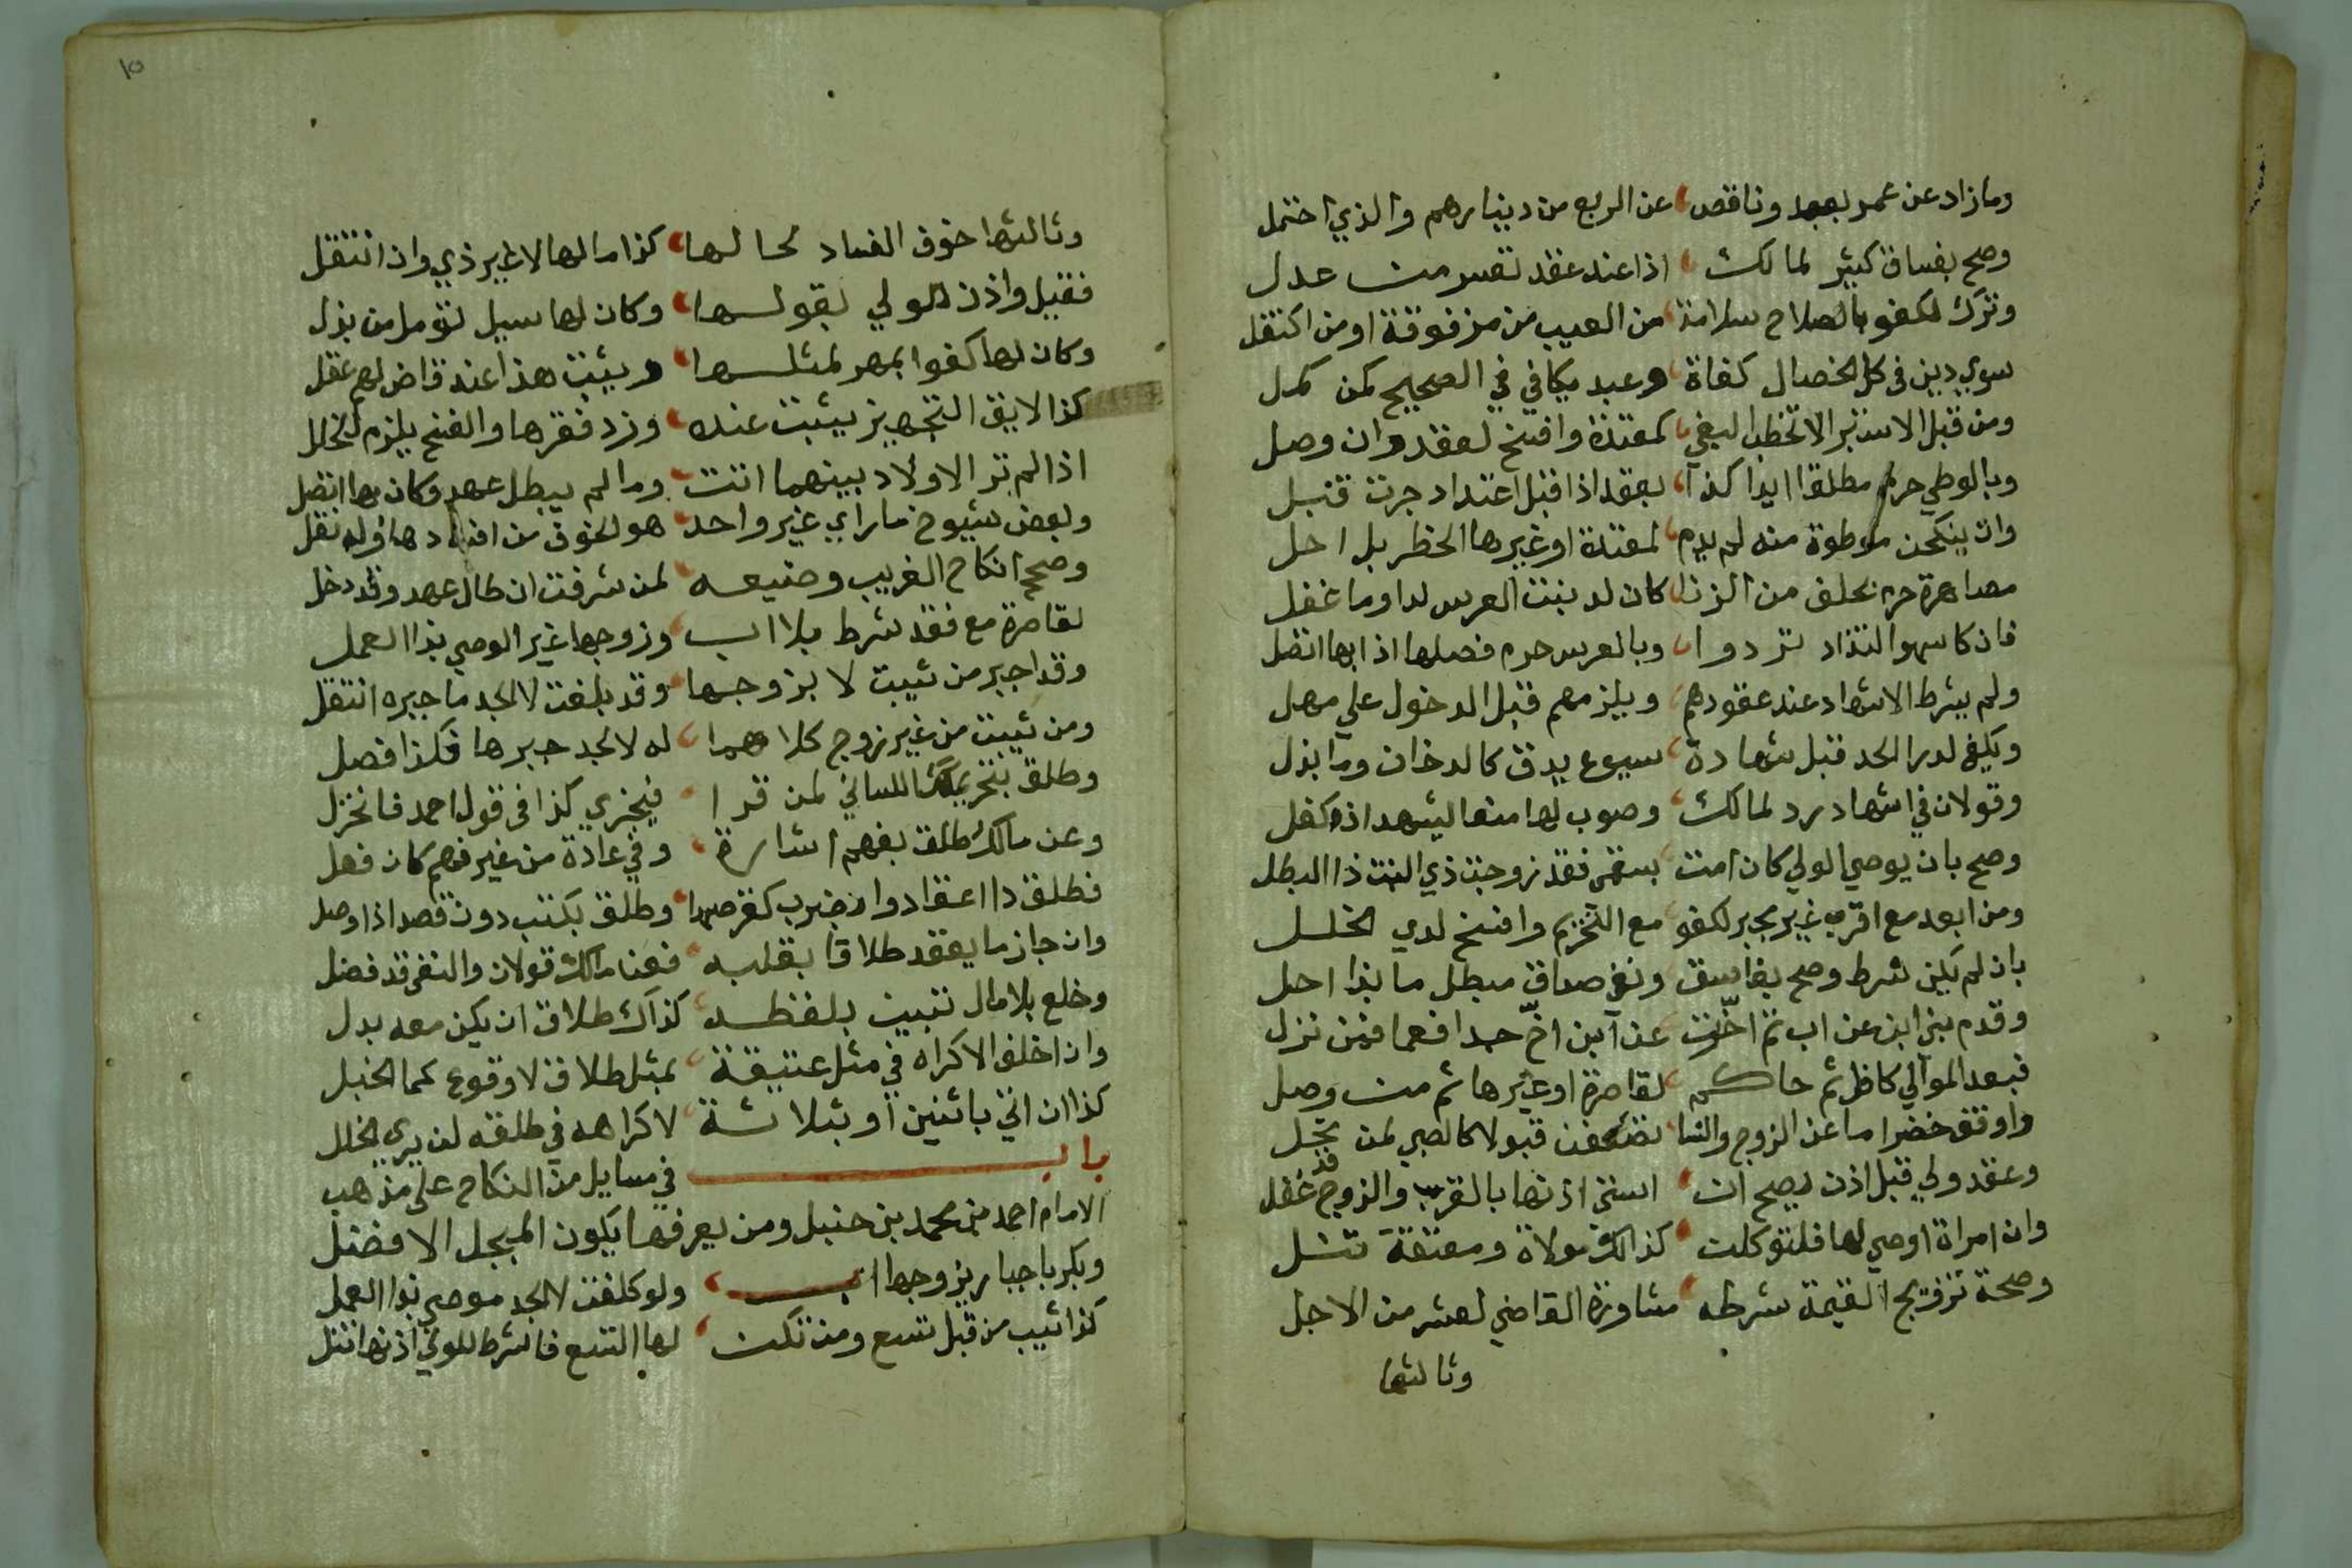 وما زاد عن عمر بعبد وناقص عن الربع من دينارهم والذي احتمل
وصح بفساق كثير لمالك اذا عند عقد تفسر من عدل
وترك لكفو بالصلاح سلامة من العيب من مزفوقة او من اكتفل
سوي دين في كل الخصال كفاة وعبد يكافي في الصحيح كمن كمل
ومن قبل الاستبرا لا تخطب البغي كمعتدة وافسخ لعقد وان وصل
وبالوطي حرم مطلقا ابدا كذا بعقد اذا قبل اعتداد جرت قبل
وان ينكحن موطوة منه لم يدم لمعتدة او غيرها الحظر بل احل
مصاهرة حرم بخلق من الزنا كان لد بنت العرس لدا وما غفل
فان كا سهوا التذاد تردوا وبالعرس حرم فصلها اذ ابها اتصل
ولم يشرط الاشهاد عند عقودهم ويلزمهم قبل الدخول علي مهل
ويكفي لدرا الحد قبل شهادة سيوع يدق كالدخان وما بذل
وقولان في اشهاد رد لمالك وصوب لها منعا ليشهد اذ كفل
وصح بان يوصي الولي كان امت بسقمي فقد زوجت ذي البنت ذا البطل
ومن ابعد مع اقرب غير مجبر لكفو مع التحريم وافسخ لدي الخلل
بان لم يكن شرط وصح بفاسق ونفي صداق مبطل ما بذا احل
وقدم بني ابن عن اب ثم اخرت عن ابن اخ جدا فعما فمن نزل
فبعد الموالي كافل ثم حاكم لقاصرة او غيرها ثم من وصل
واوفق خضرا ما عن الزوج والنسا تضعفن قبولا كالصبي لمن بجل
وعقد ولي قبل اذن يصح ان اسنني اذنها بالقرب والزوج قد غفل
وان امراة اوصي لها فلتوكلت كذالك مولاة ومعتقة تنسل
وصحة تزويج اليتيمة شرطه مشاورة القاضي لعشر من الاجل
وثالثها
١٥
وثالثها خوف الفساد لحالها كذا مالها لا غير ذي وان انتقل
فقبل واذن للولي بقولها وكان لها سيل تومل من بذل
وكان لها كفوا بمهر لمثلها ويثبت هذا عند قاض لهم عقل
كذا لايق التجهيز يثبت عنده وزد فقرها والفسخ يلزم للخلل
اذا لم تر الاولاد بينهما انت وما لم يبطل عهد وكان بها اتصل
وبعض شيوخ ما راي غير واحد هو الخوف من افسادها وله نقل
وصحح انكاح الغريب وضيعه لمن شرفت ان طال عهد وقد دخل
لقاصرة مع فقد شرط بلا اب وزوجها غير الوصي بذا العمل
وقد اجبر من ثيبت لا بزوجها وقد بلغت لا الجد ما جبره انتقل
ومن ثيبت من غير زوج كلاهما له لا لجد جبرها فكذا فصل
وطلق بتحريك اللسان لمن قرا فيجزي كذا في قول احمد فانخزل
وعن مالك طلق بفهم اشارة وفي عادة من غير فهم كان فعل
فطلق ذا اعقاد وان ضرب كقرصها وطلق بكتب دون قصد اذا وصل
وان جاز ما يعقد طلاقا بقلبه فعنا مالك قولان والنفي قد فضل
وخلع بلا مال تبيين بلفظه كذاك طلاق ان يكن معه بدل
وان اخلف الاكراه في مثل عتيقة بمثل طلاق لا وقوع كما الخبل
كذا ان اتي باثنين او بثلاثة لاكراهه في طلقه لن يري الخلل
باب في مسايل من النكاح على مذهب
الامام احمد بن محمد بن حنبل ومن يعرفها يكون المبجل الافضل
وبكر باجبار يزوجها اب ولو كلفت لا الجد موصي بذا العمل
كذا ثيب من قبل تسع ومن تكن لها التسع فالشرط للولي اذنها انتل